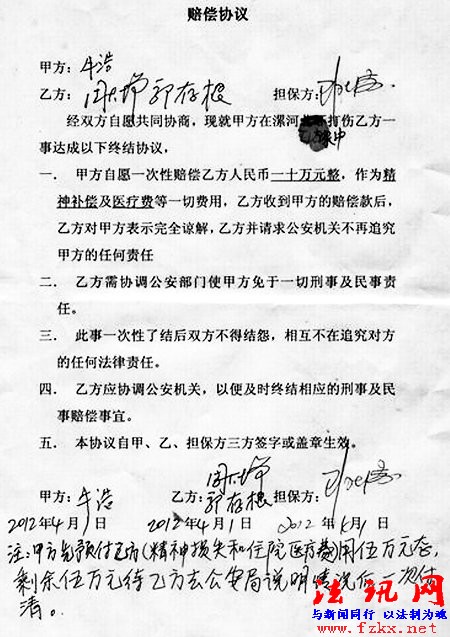 赔偿协议
甲方：牛浩
乙方： 郭存根 担保方：
经双方自愿共同协商，现就甲方在漯河 打伤乙方一
事达成以下终结协议，
一． 甲方自愿一次性赔偿乙方人民币一十万元整，作为精
神补偿及医疗费等一切费用，乙方收到甲方的赔偿款后，
乙方对甲方表示完全谅解，乙方并请求公安机关不再追究
甲方的任何责任
二． 乙方需协调公安部门使甲方免于一切刑事及民事责
任。
三． 此事一次性了结后双方不得结怨，相互不在追究对方
的任何法律责任。
四． 乙方应协调公安机关，以便及时终结相应的刑事及民
事赔偿事宜。
五． 本协议自甲、乙、担保方三方签字或盖章生效。
甲方：牛浩 乙方： 郭存根 担保方：
2012年4月1日 2012年4月1日 2012年 月1日
注：甲方先预付乙方（精神损失和住院医疗费）用伍万元 ，
剩余伍万元待乙方去公安局说明情况后一次付
清。
法讯网
与新闻同行 以法制为魂
www.fzkx.net